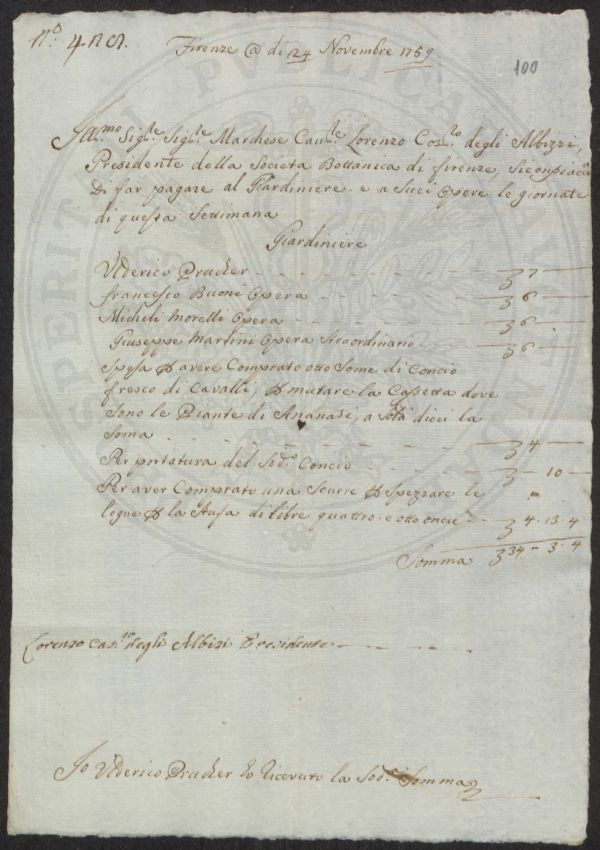 N.o
Firenze @ di 24 Novembre 1759
100
Ill.mo Sig.re Sig.re Marchese Cav.re Lorenzo Cos.to degli Albizzi,
Presidente della Societa Bottanica di firenze, si conpiac
di far pagare al Giardiniere e a suoi Opere le giornate
di questa Settimana
Giardiniere
Ulderico Prucker - - - 7 -
francesco Buoni Opera - - - 6 -
Micheli Moretti Opera - - - 6 -
Giuseppe Martini Opera Straordinario - - - 6 -
Spesa p avere Comprato otto Some di Concio
fresco di Cavalli, p mutare la Cassetta dove
sono le Piante di Ananasi, a soldi dieci la
Soma - - - 4 -
Per portatura del Sod.o Concio - - - 10 -
Per aver Comprato una Scurre p spezzare le
legne p la Stufa di libre quattro e otto oncie - - 4.13.4
Somma 34 - 3.4
Lorenzo Cos.to degli Albizi Presidente
Io Ulderico Prucker ho ricevuto la Sod.a Somma